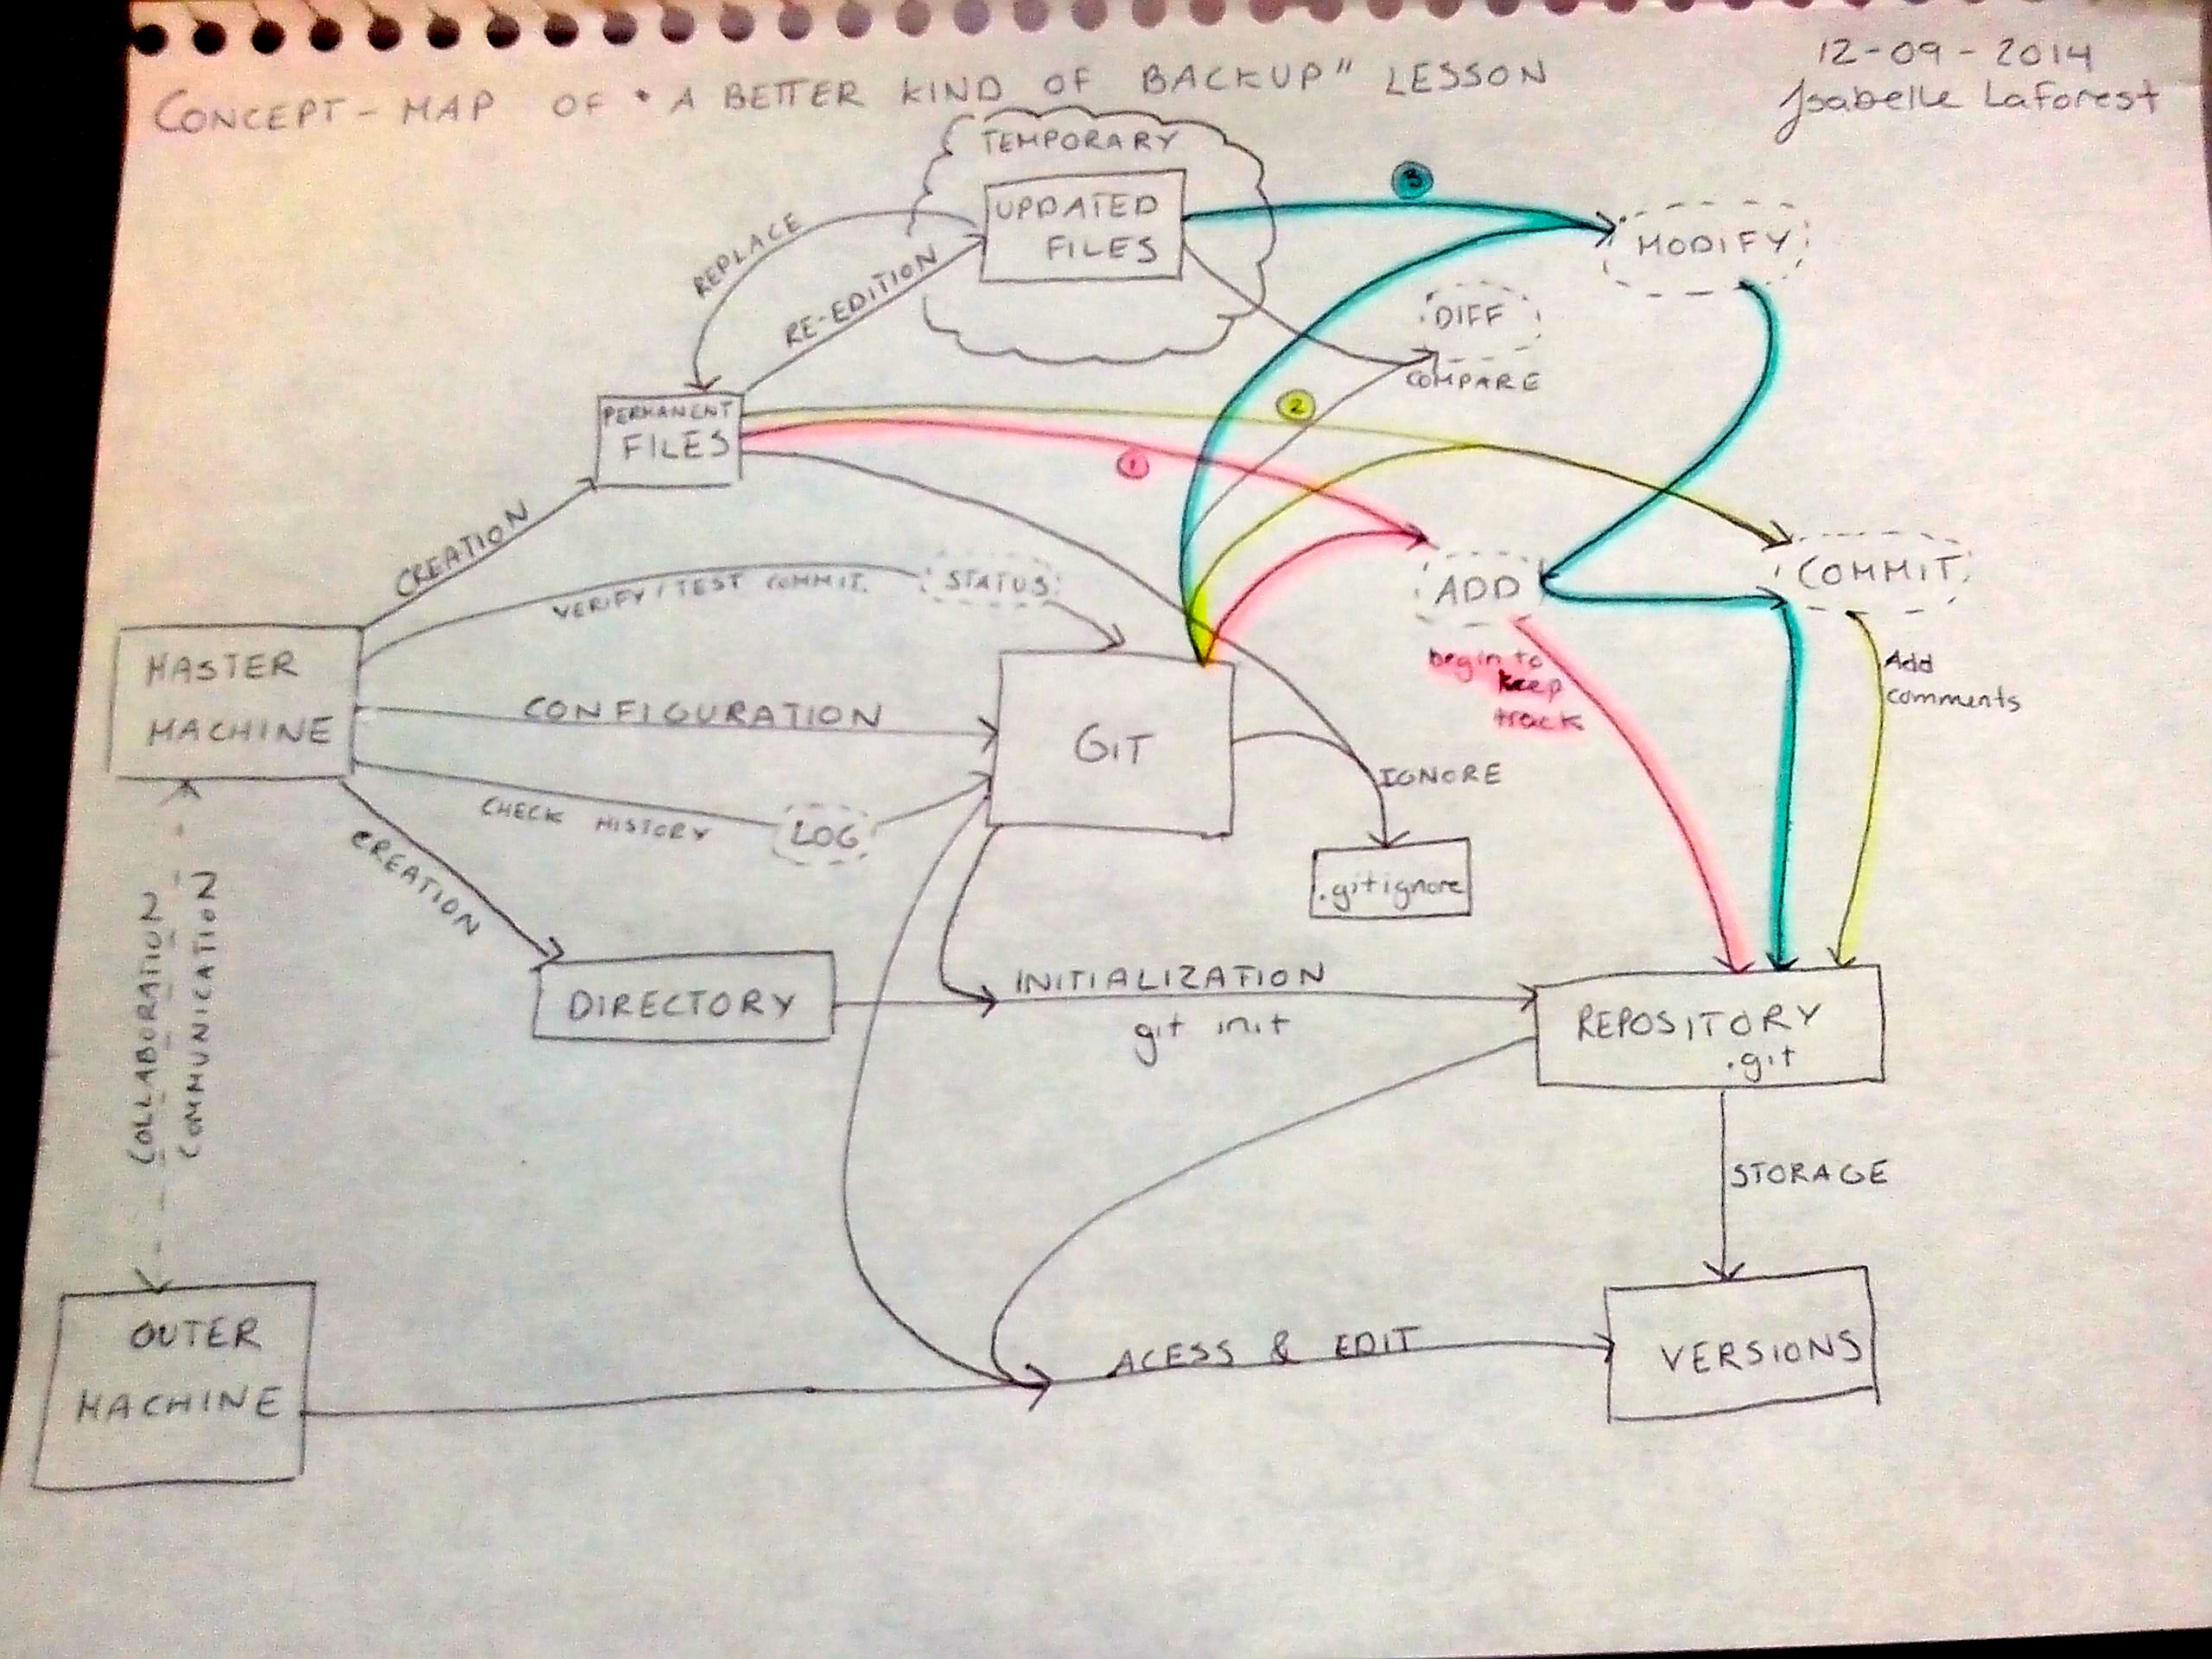 12-09-2014
Isabelle LaForest
CONCEPT-MAP OF "A BETTER KIND OF BACKUP" LESSON
TEMPORARY
UPDATED
FILES
3
MODIFY
REPLACE
RE-EDITION
DIFF
COMPARE
2
PERMANENT
FILES
1
CREATION
VERIFY/TEST COMMIT.
STATUS
ADD
begin to
keep
track
COMMIT
Add
comments
MASTER
MACHINE
CONFIGURATION
GIT
IGNORE
CHECK HISTORY
LOG
.gitignore
CREATION
COLLABORATION
COMMUNICATION
DIRECTORY
INITIALIZATION
git init
REPOSITORY
.git
STORAGE
OUTER
MACHINE
ACESS & EDIT
VERSIONS